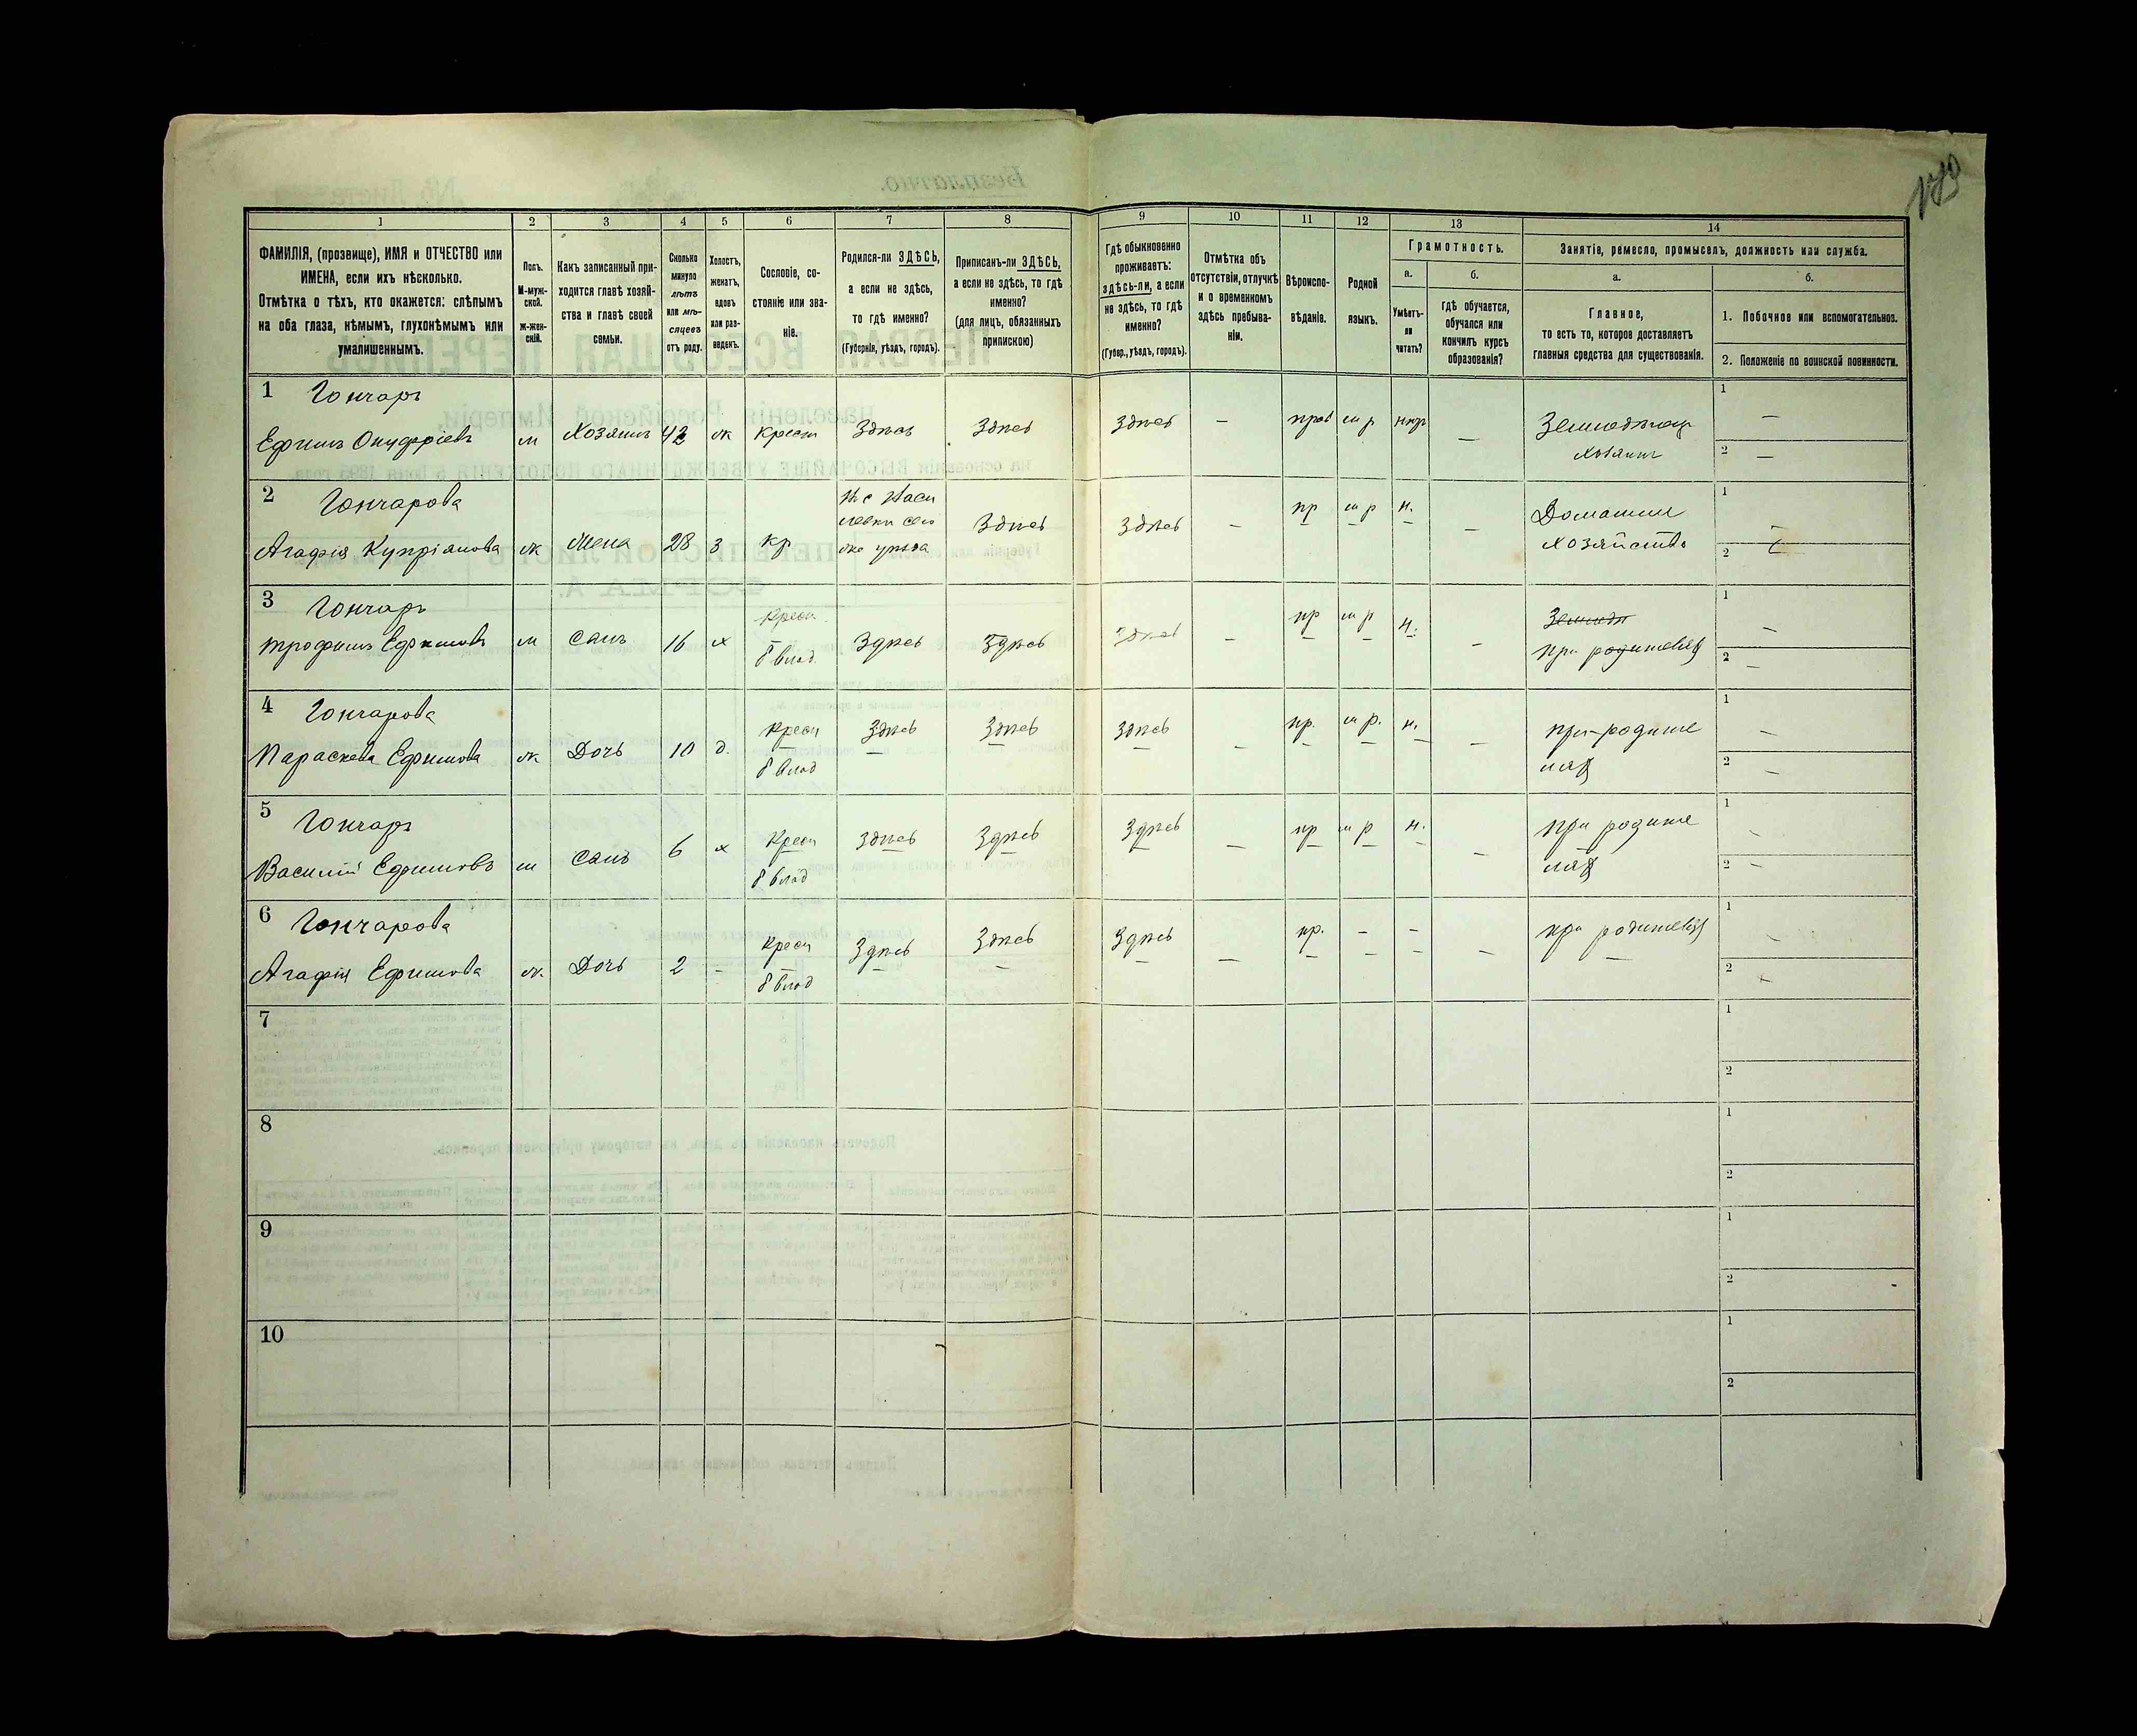 170
1 2 3 4 5 6 7 8 9 10 11 12 13 14
ФАМИЛІЯ, (прозвище), ИМЯ и ОТЧЕСТВО или
ИМЕНА, если ихъ нѣсколько.
Отмѣтка о тѣхъ, кто окажется: слѣпымъ
на оба глаза, нѣмымъ, глухонѣмымъ или
умалишеннымъ.
Полъ.
М-муж-
ской.
Ж-жен-
скій.
Какъ записанный при-
ходится главѣ хозяй-
ства и главѣ своей
семьи.
Сколько
минуло
лѣтъ
или мѣ-
сяцевъ
отъ роду.
Холостъ,
женатъ,
вдовъ
или раз-
веденъ.
Сословіе, со-
стояніе или зва-
ніе.
Родился-ли ЗДѢСЬ,
а если не здѣсь,
то гдѣ именно?
(Губернія, уѣздъ, городъ).
Приписанъ-ли ЗДѢСЬ,
а если не здѣсь, то гдѣ
именно?
(для лицъ, обязанныхъ
припискою)
Гдѣ обыкновенно
проживаетъ:
здѣсь-ли, а если
не здѣсь, то гдѣ
именно?
(Губер., уѣздъ, городъ).
Отмѣтка объ
отсутствіи, отлучкѣ
и о временномъ
здѣсь пребыва-
ніи.
Вѣроиспо-
вѣданіе.
Родной
языкъ.
Грамотность.
а.
Умѣетъ-
ли
читать?
б.
гдѣ обучается,
обучался или
кончилъ курсъ
образованія?
Занятіе, ремесло, промыселъ, должность или служба.
а.
Главное,
то есть то, которое доставляетъ
главныя средства для существованія.
б.
1. Побочное или вспомогательное.
2. Положеніе по воинской повинности.
1 Гончаръ
Ефимъ Онуфріевъ м Хозяинъ 42 ж крестьян Здѣсь Здѣсь Здѣсь — прав м р —
Земледѣлец
хозяинъ
1 —
2 —
2 Гончарова
Агафія Купріанова ж Жена 28 з кр
Здѣсь Здѣсь — пр м р н. —
Домашнее
хозяйство
1 —
2
3 Гончаръ
Трофимъ Ефимовъ м сынъ 16 х
Крест
б влад.
Здѣсь Здѣсь Здѣсь — пр м р н. —
при родителях
1 —
2 —
4 Гончарова
Параскева Ефимова ж Дочь 10 д.
Крест
б влад
Здѣсь Здѣсь Здѣсь — пр. м р. н. —
при родите
лях
1 —
2 —
5 Гончаръ
Василій Ефимовъ м сынъ 6 х
Крест
б влад
Здѣсь Здѣсь Здѣсь — пр м р н. —
при родите
лях
1 -
2 —
6 Гончарова
Агафія Ефимова ж. Дочь 2 -
Крест
б влад
Здѣсь Здѣсь Здѣсь — пр. - - —
при родителях
1 -
2 -
7
1
2
8
1
2
9
1
2
10
1
2